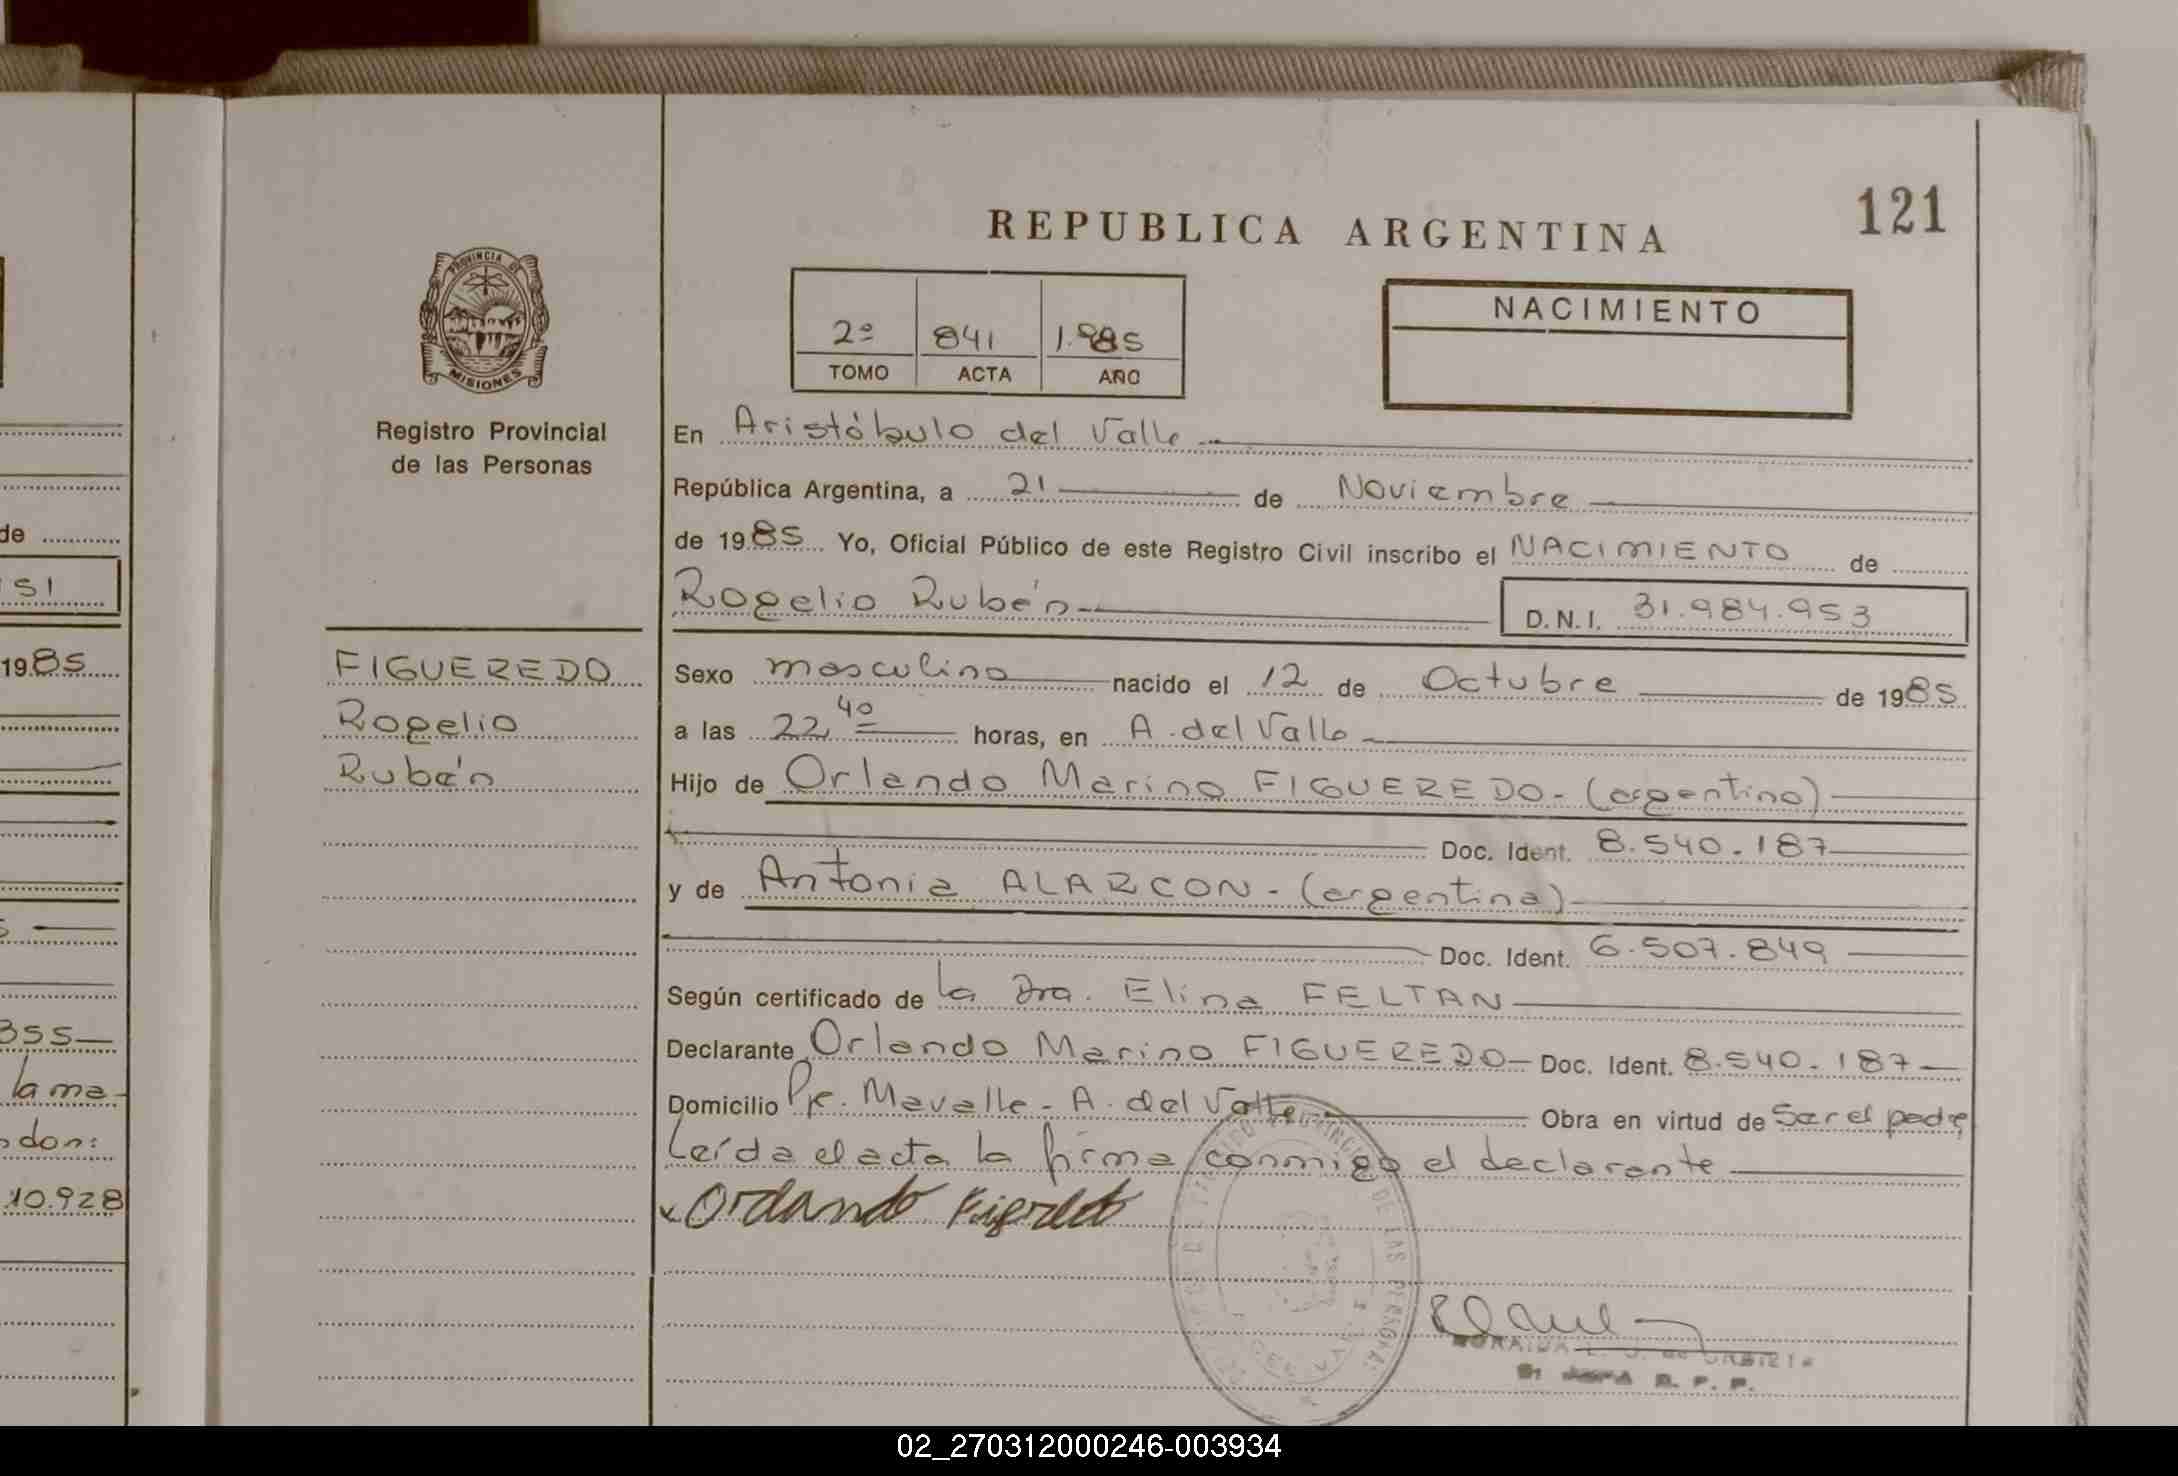 REPUBLICA ARGENTINA
121
PROVINCIA DE
MISIONES
Registro Provincial
de las Personas
2º 841 1.985
TOMO ACTA AÑO
NACIMIENTO
En Aristóbulo del Valle
República Argentina, a 21 de Noviembre
de 1985 Yo, Oficial Público de este Registro Civil inscribo el NACIMIENTO de
Rogelio Rubén D.N.I. 31.984.953
FIGUEREDO
Rogelio
Rubén
Sexo masculino nacido el 12 de Octubre de 1985
a las 22,40 horas, en A. del Valle
Hijo de Orlando Marino FIGUEREDO - (argentino)
Doc. Ident. 8.540.187
y de Antonia ALARCON - (argentina)
Doc. Ident. 6.507.849
Según certificado de la Dra. Elina FELTAN
Declarante Orlando Marino FIGUEREDO - Doc. Ident. 8.540.187
Domicilio Pje. Mavalle - A. del Valle Obra en virtud de Ser el padre
Leída el acta la firma conmigo el declarante
Ordando Figredo
de
51
1985
355
la ma-
don:
10.928
02_270312000246-003934